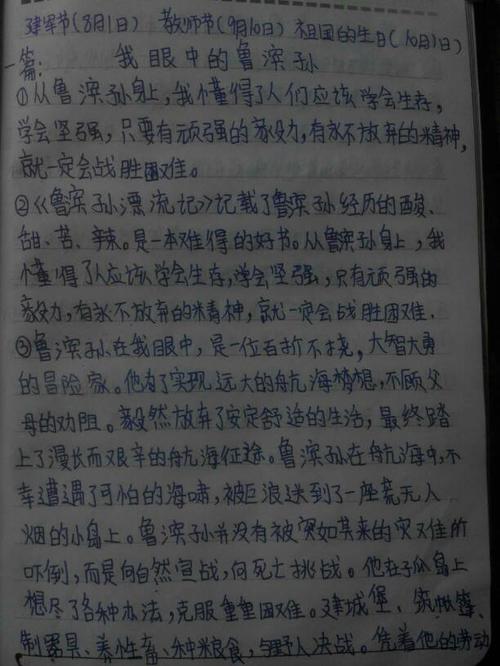 建军节(8月1日) 教师节(9月10日) 祖国的生日(10月1日)
一篇: 我眼中的鲁滨孙
①从鲁滨孙身上,我懂得了人们应该学会生存,
学会坚强,只要有顽强的毅力,有永不放弃的精神,
就一定会战胜困难。
②《鲁滨孙漂流记》记载了鲁滨孙经历的酸、
甜、苦、辣。是一本难得的好书。从鲁滨孙身上,我
懂得了人应该学会生存,学会坚强,只有顽强的
毅力,有永不放弃的精神,就一定会战胜困难.
③鲁滨孙在我眼中,是一位百折不挠,大智大勇
的冒险家。他为了实现远大的航海梦想,不顾父
母的劝阻。毅然放弃了安定舒适的生活,最终踏
上了漫长而艰辛的航海征途。鲁滨孙在航海中,不
幸遭遇了可怕的海啸,被巨浪送到了一座荒无人
烟的小岛上。鲁滨孙并没有被突如其来的灾难所
吓倒,而是向自然宣战,向死亡挑战。他在孤岛上
想尽了各种办法,克服重重困难。建城堡、筑帐篷、
制器具、养牲畜、种粮食,与野人决战。凭着他的劳动